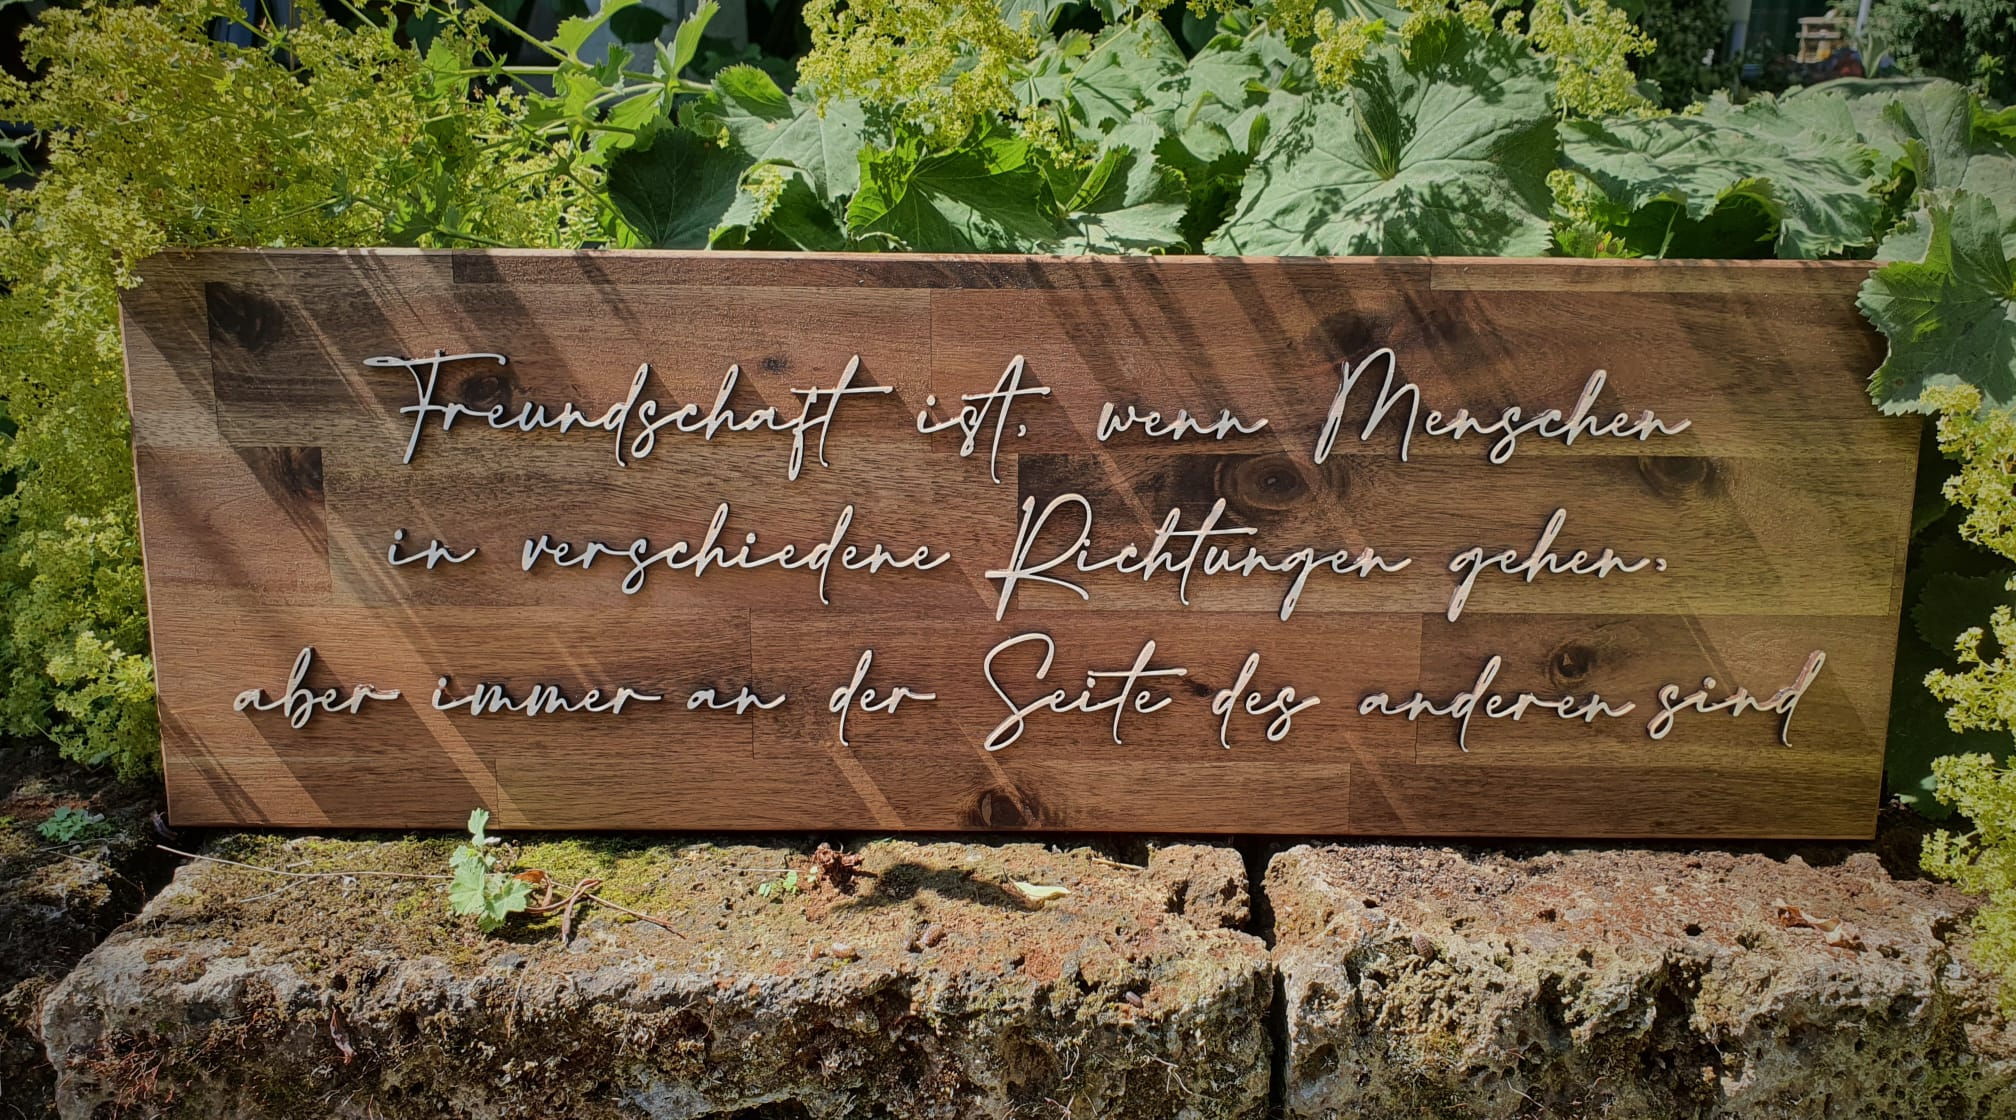 Freundschaft ist, wenn Menschen
in verschiedene Richtungen gehen,
aber immer an der Seite des anderen sind